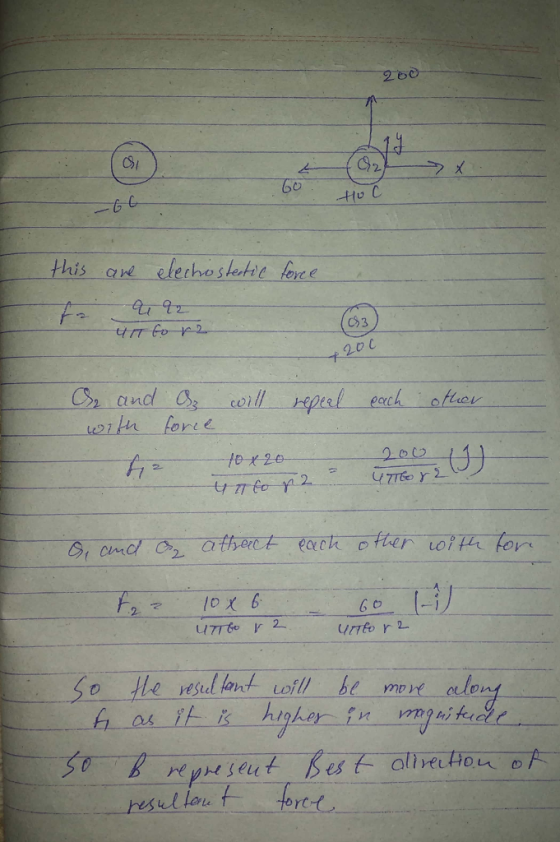 200
Q1
Q2
y
x
60
-6C
+10C
this are electrostatic force
f = q1 q2 / 4π€0 r2
Q3
+20C
Q2 and Q3 will repeal each other
with force
f1 = 10 x 20 / 4π€0 r2 = 200 / 4π€0 r2 (J)
Q1 and Q2 attract each other with for
f2 = 10 x 6 / 4π€0 r2 = 60 / 4π€0 r2 (-î)
So the resultant will be more along
f1 as it is higher in magnitude.
So B represent Best direction of
resultant force.